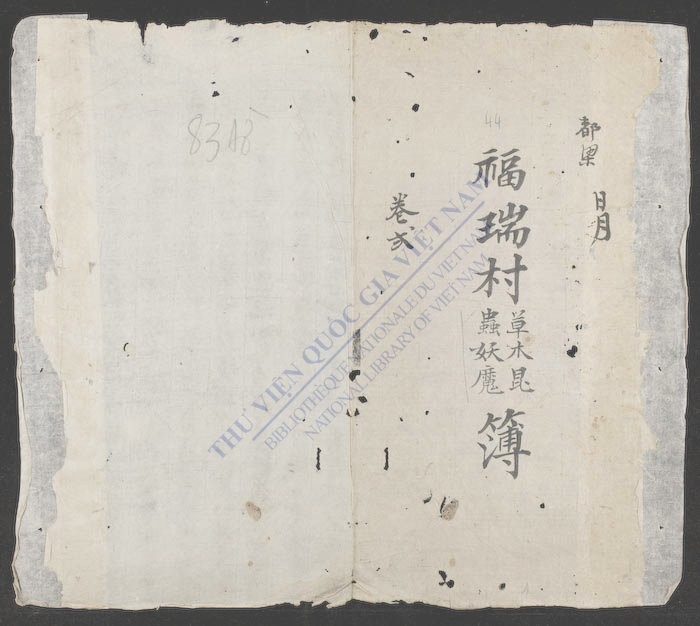 都梁
日月
44
福瑞村
草木昆
蟲妖魔
簿
卷弍
THƯ VIỆN QUỐC GIA VIỆT NAM
BIBLIOTHÈQUE NATIONALE DU VIETNAM
NATIONAL LIBRARY OF VIET NAM